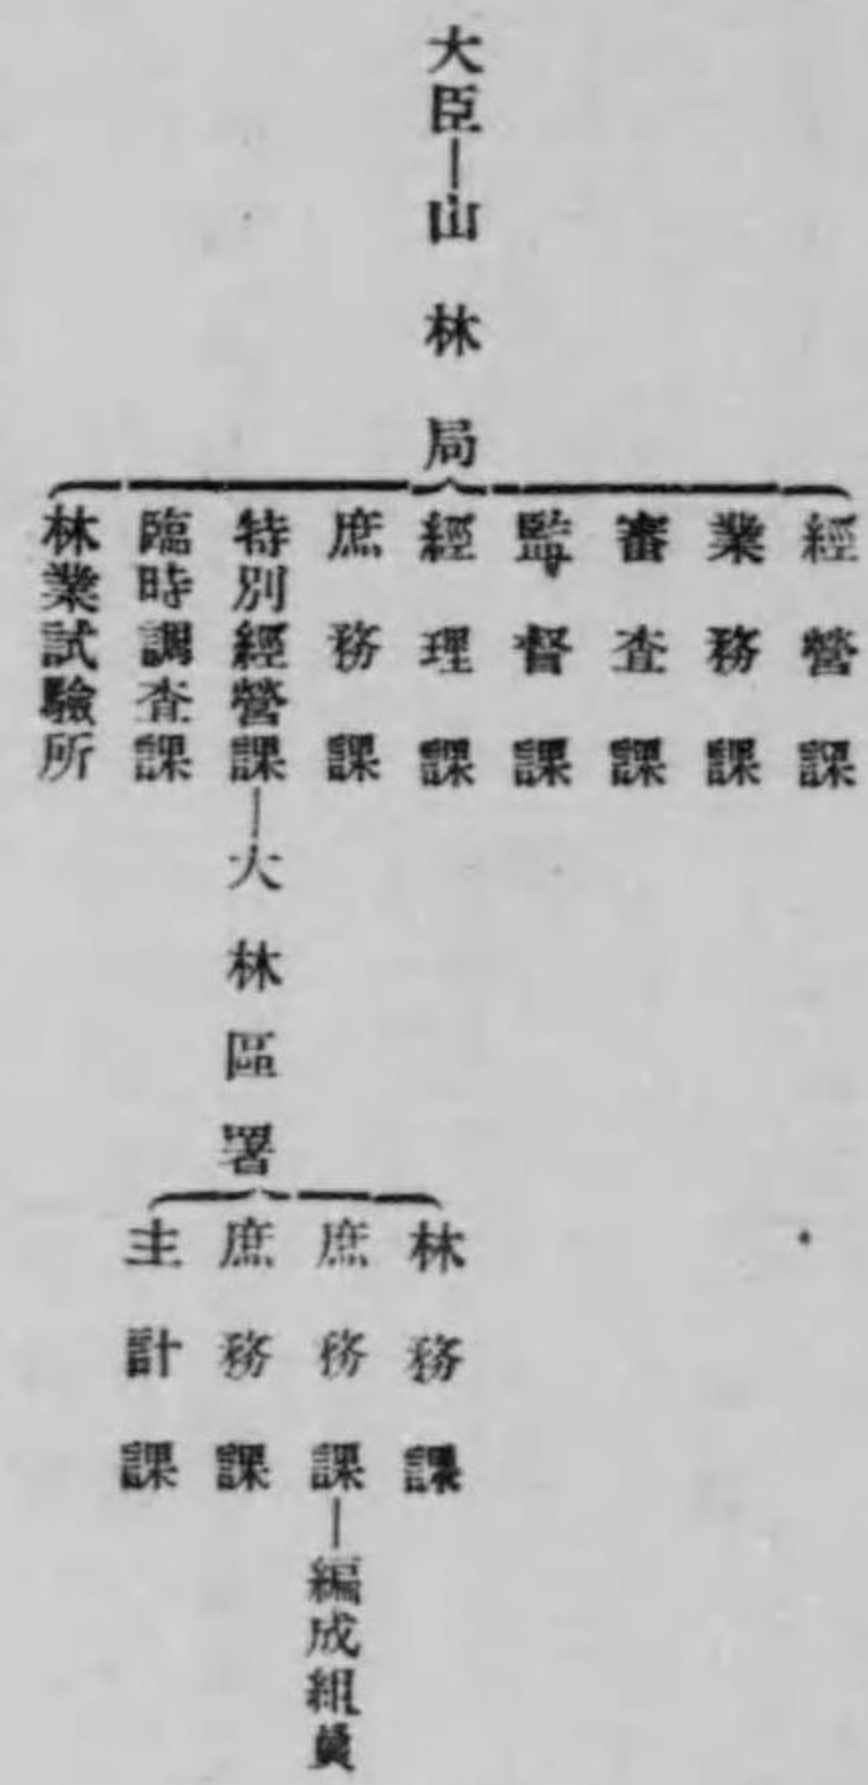 大臣―山林局
經營課
業務課
審査課
監督課
經理課
庶務課
特別經營課―大林區署
臨時調査課
林業試驗所
林務課
庶務課―編成組員
庶務課
主計課